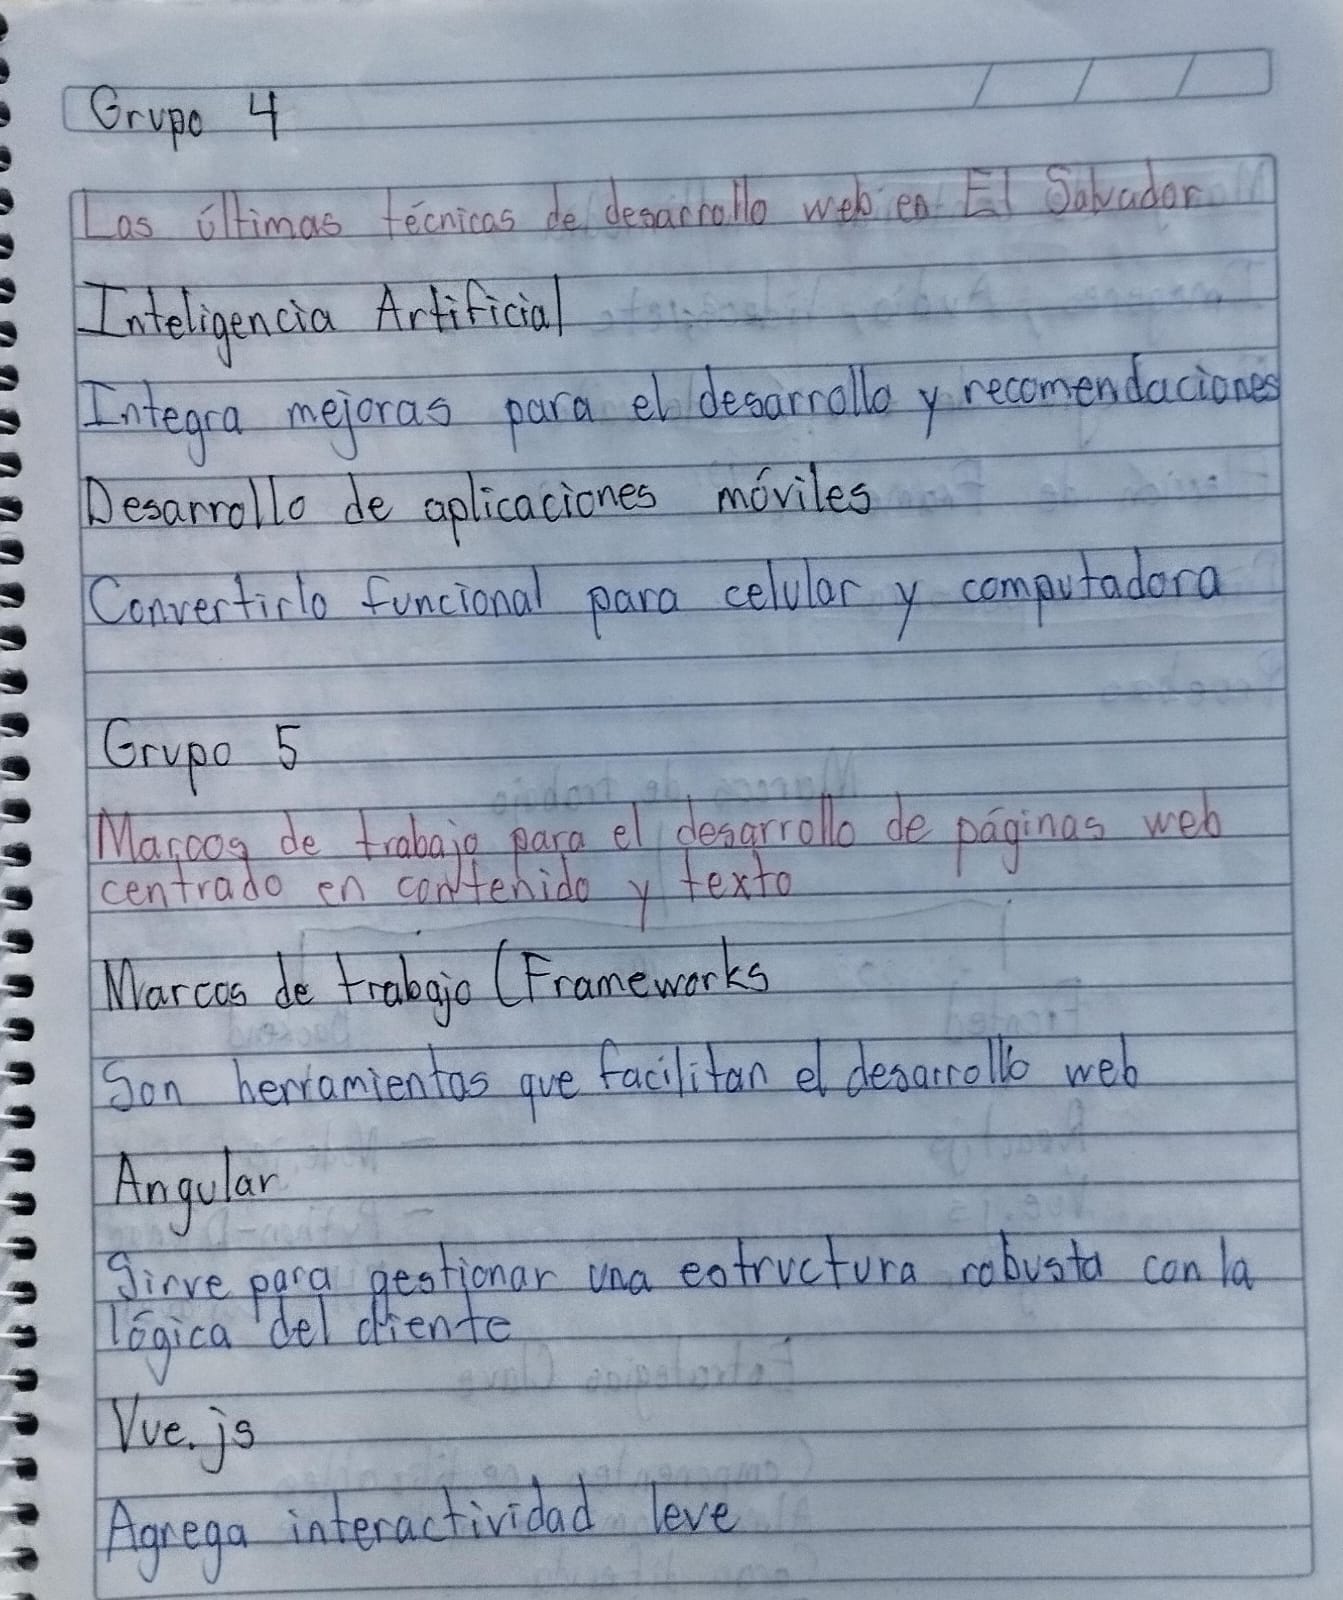 Grupo 4
Las últimas técnicas de desarrollo web en El Salvador
Inteligencia Artificial
Integra mejoras para el desarrollo y recomendaciones
Desarrollo de aplicaciones móviles
Convertirlo funcional para celular y computadora
Grupo 5
Marcos de trabajo para el desarrollo de páginas web
centrado en contenido y texto
Marcos de trabajo (Frameworks
Son herramientas que facilitan el desarrollo web
Angular
Sirve para gestionar una estructura robusta con la
lógica del cliente
Vue.js
Agrega interactividad leve